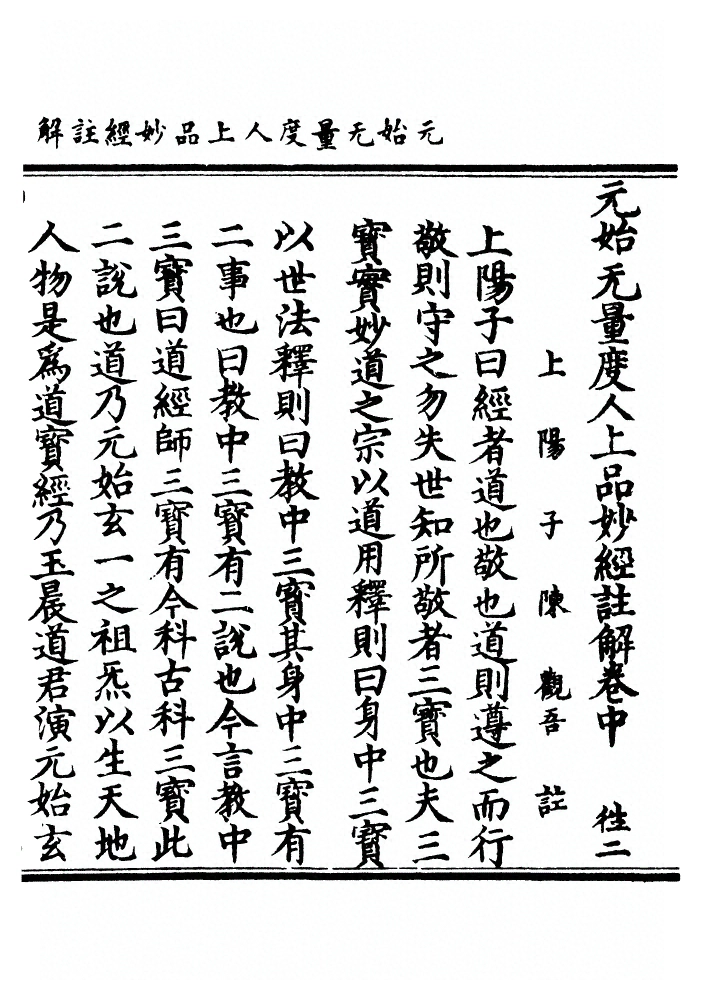 元始无量度人上品妙經註解
元始无量度人上品妙經註解卷中 徃二
上陽子陳觀吾註
上陽子曰經者道也敬也道則遵之而行
敬則守之勿失世知所敬者三寳也夫三
寳實妙道之宗以道用釋則曰身中三寳
以世法釋則曰教中三寳其身中三寳有
二事也曰教中三寳有二說也今言教中
三寳曰道經師三寳有今科古科三寳此
二說也道乃元始玄一之祖炁以生天地
人物是爲道寳經乃玉晨道君演元始玄